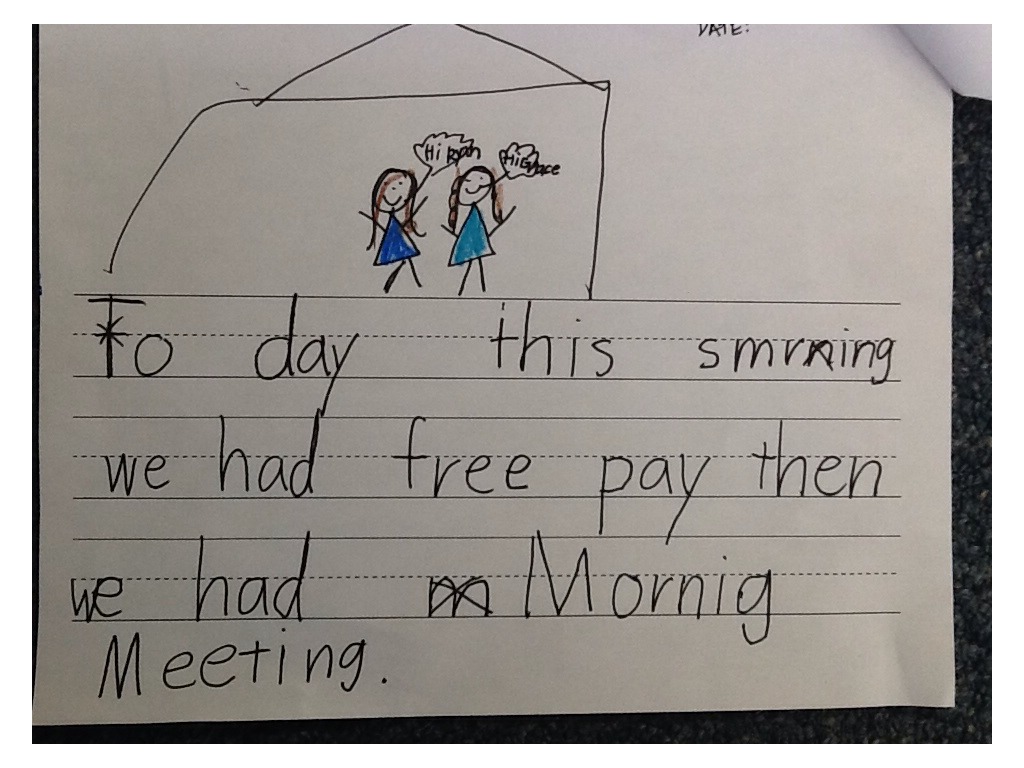 DATE:
Hi
Hi Grace
To day this smrning
we had free pay then
we had Mornig
Meeting.